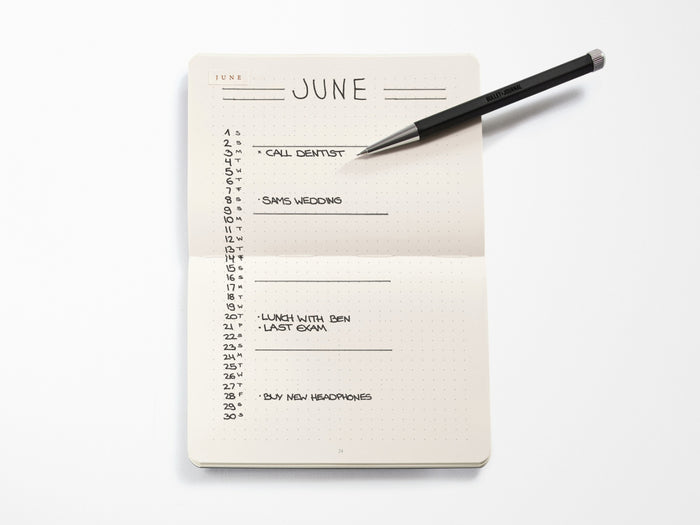 JUNE
JUNE
1 S
2 S
3 M × CALL DENTIST
4 T
5 W
6 T
7 F
8 S · SAMS WEDDING
9 S
10 M
11 T
12 W
13 T
14 F
15 S
16 S
17 M
18 T
19 W
20 T · LUNCH WITH BEN
21 F · LAST EXAM
22 S
23 S
24 M
25 T
26 W
27 T
28 F · BUY NEW HEADPHONES
29 S
30 S
24
BULLET JOURNAL